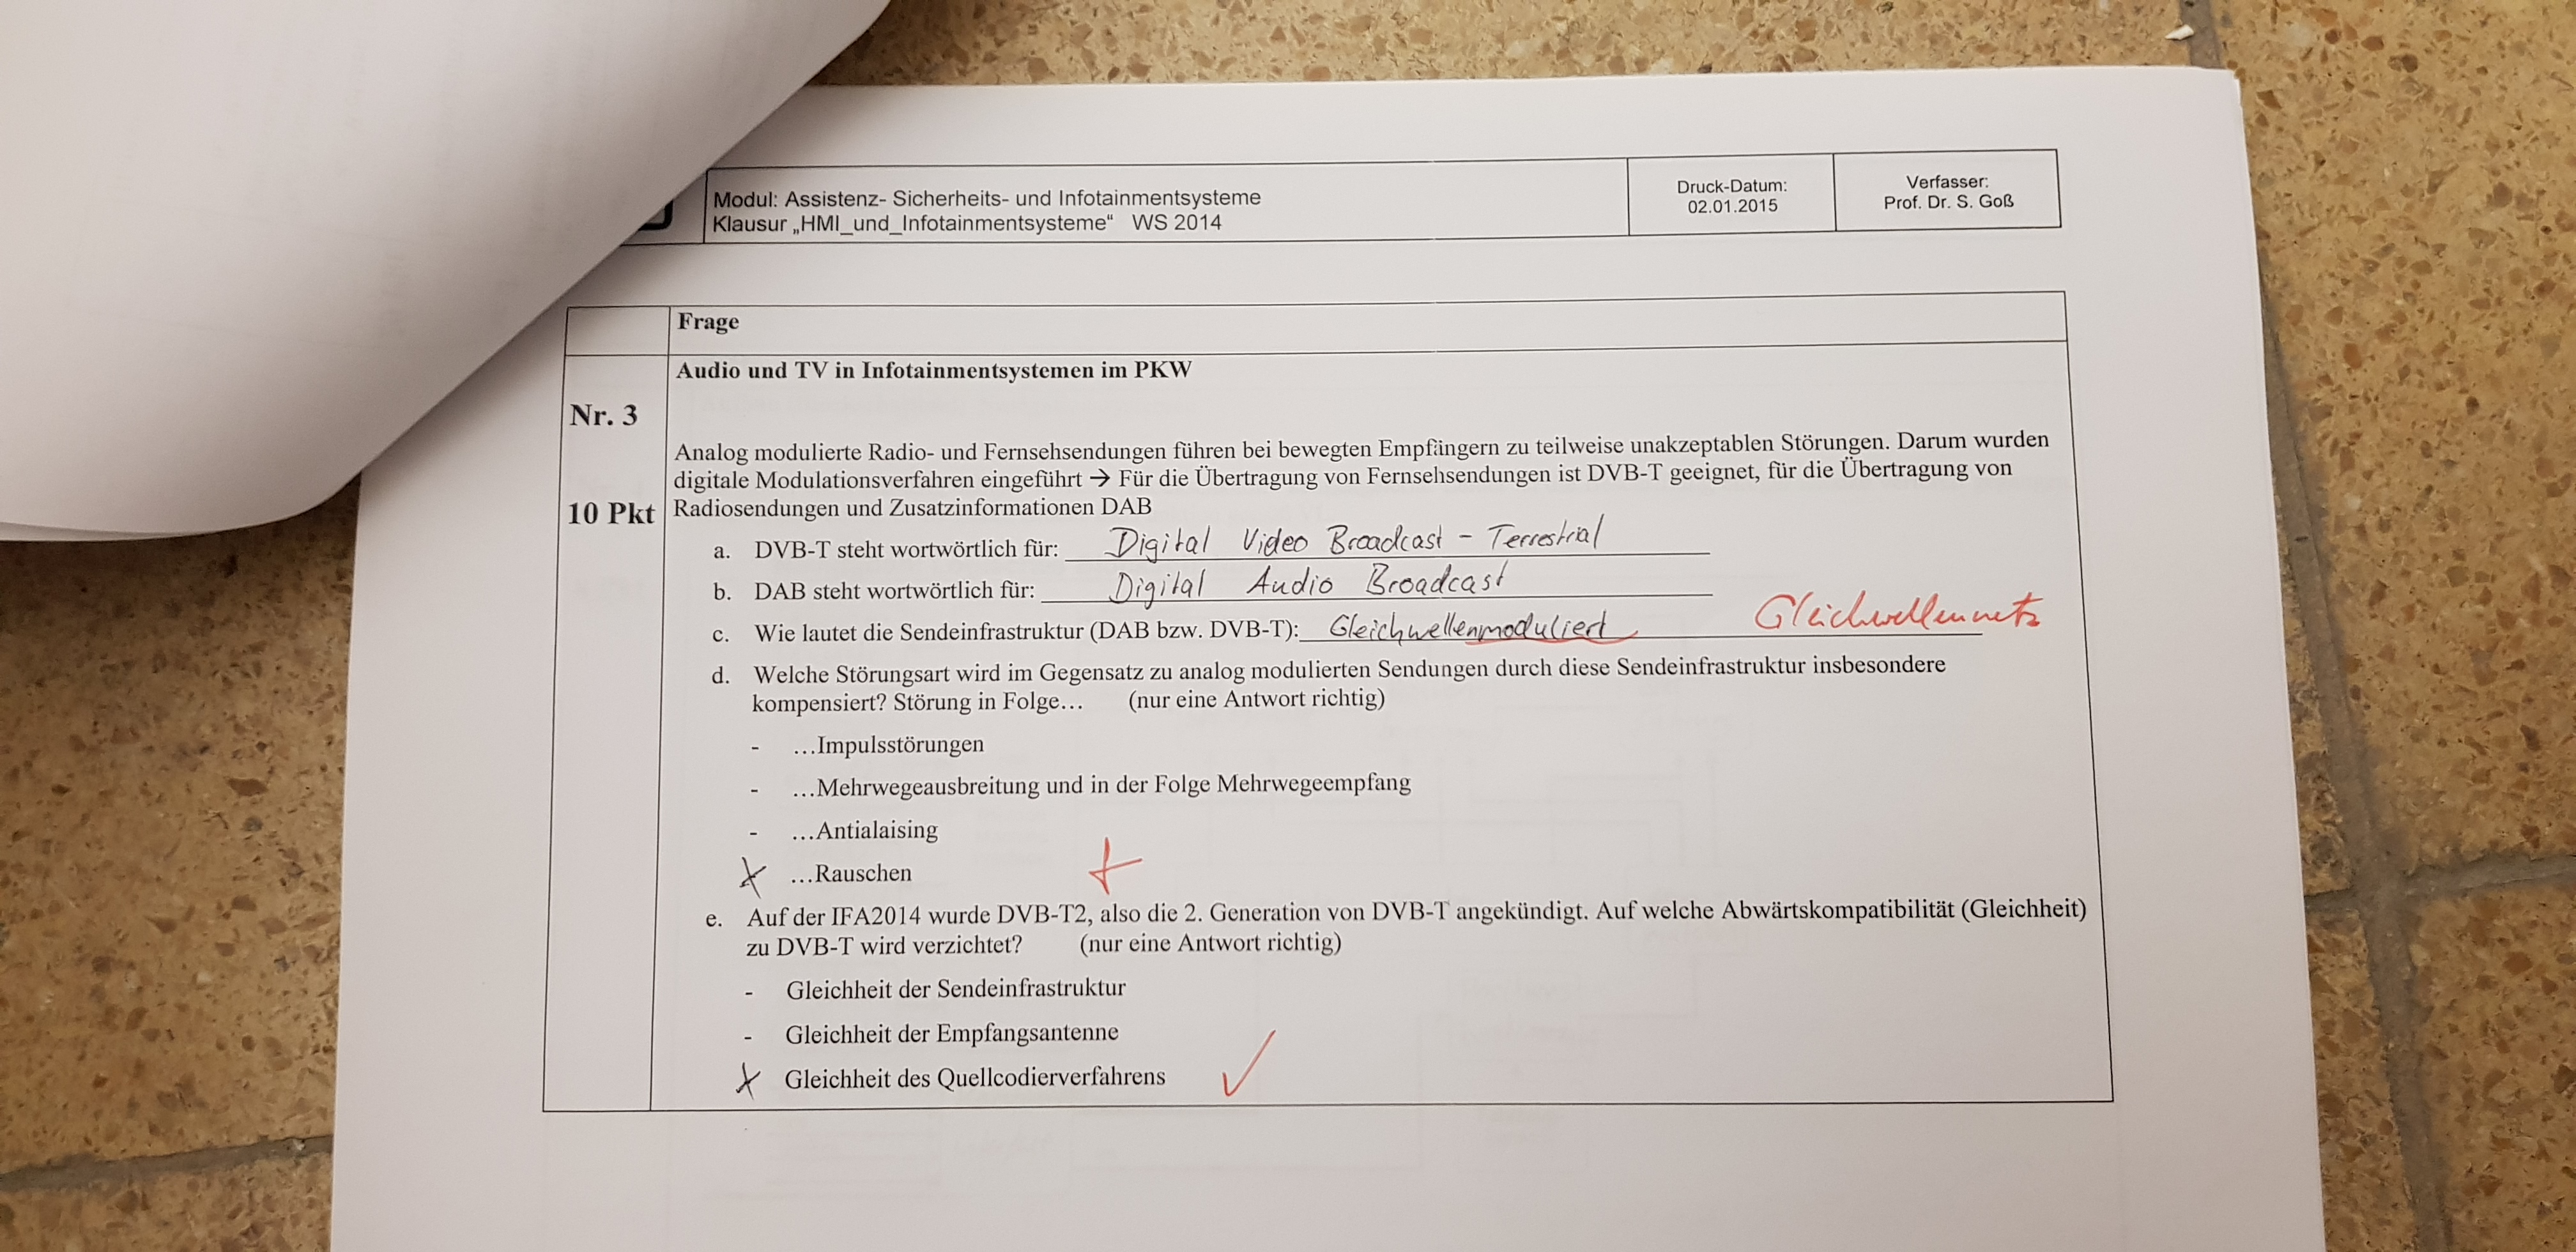 Modul: Assistenz- Sicherheits- und Infotainmentsysteme
Klausur „HMI_und_Infotainmentsysteme“ WS 2014
Druck-Datum:
02.01.2015
Verfasser:
Prof. Dr. S. Goß
Frage
Audio und TV in Infotainmentsystemen im PKW
Nr. 3
10 Pkt
Analog modulierte Radio- und Fernsehsendungen führen bei bewegten Empfängern zu teilweise unakzeptablen Störungen. Darum wurden
digitale Modulationsverfahren eingeführt → Für die Übertragung von Fernsehsendungen ist DVB-T geeignet, für die Übertragung von
Radiosendungen und Zusatzinformationen DAB
a. DVB-T steht wortwörtlich für: Digital Video Broadcast - Terrestrial
b. DAB steht wortwörtlich für: Digital Audio Broadcast
c. Wie lautet die Sendeinfrastruktur (DAB bzw. DVB-T): Gleichwellenmoduliert Gleichwellennetz
d. Welche Störungsart wird im Gegensatz zu analog modulierten Sendungen durch diese Sendeinfrastruktur insbesondere
kompensiert? Störung in Folge… (nur eine Antwort richtig)
- …Impulsstörungen
- …Mehrwegeausbreitung und in der Folge Mehrwegeempfang
- …Antialaising
X …Rauschen
e. Auf der IFA2014 wurde DVB-T2, also die 2. Generation von DVB-T angekündigt. Auf welche Abwärtskompatibilität (Gleichheit)
zu DVB-T wird verzichtet? (nur eine Antwort richtig)
- Gleichheit der Sendeinfrastruktur
- Gleichheit der Empfangsantenne
X Gleichheit des Quellcodierverfahrens ✓